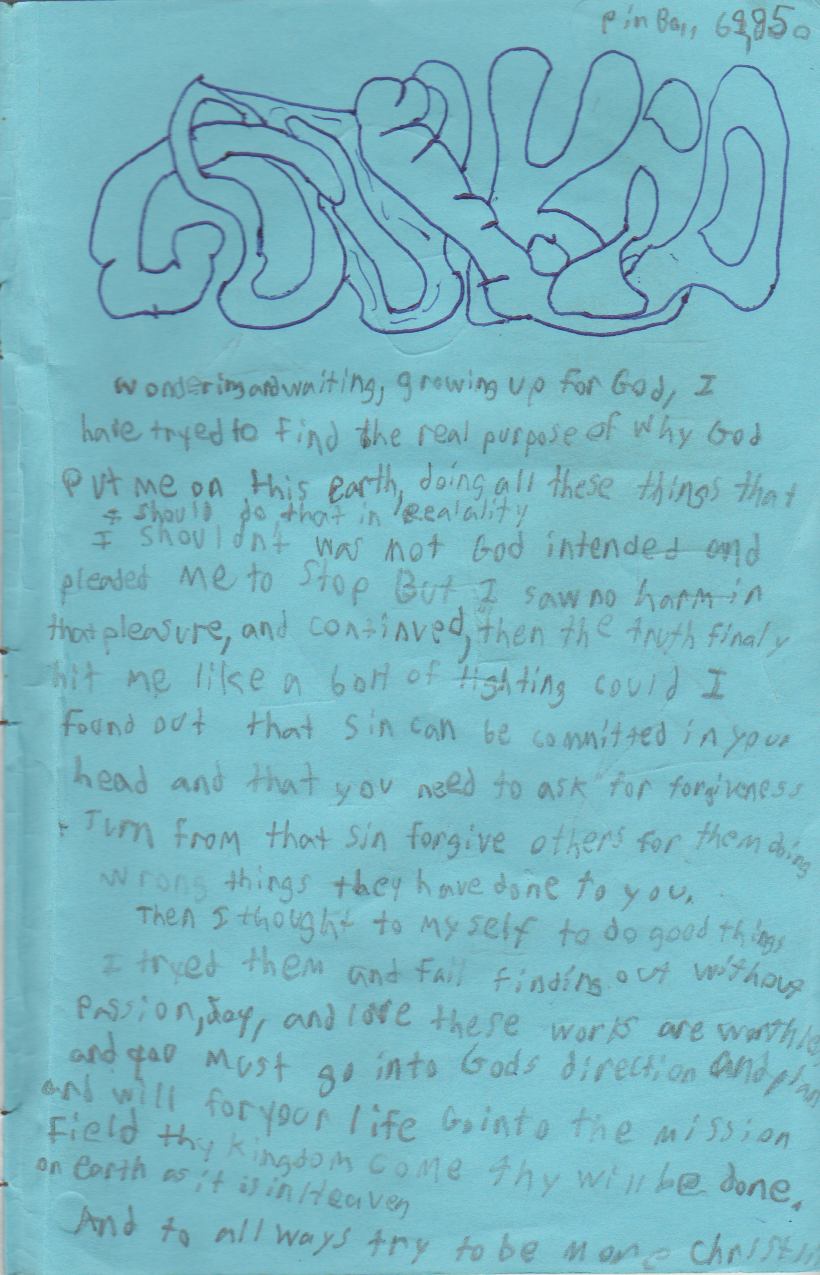 Pin Ball 69,850
GODS KiD
wonderingandwaiting, growing up for God, I
have tryed to find the real purpose of why God
Put me on this earth, doing all these things that
I should do, that in realality
I shouldn't was not God intended and
pleaded me to Stop But I saw no harm in
that pleasure, and continued, then the truth finaly
hit me like a bolt of lighting could I
found out that sin can be committed in your
head and that you need to ask for forgiveness
+ Turn from that sin forgive others for them doing
wrong things they have done to you.
Then I thought to my self to do good things
I tryed them and fail finding out without
Passion, Joy, and love these works are
and you must go into Gods direction and plan
and will for your life Go into the mission
field thy Kingdom come thy will be done.
on earth as it is in Heaven
And to all ways try to be more